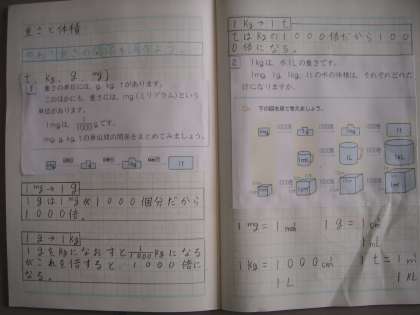 重さと体積
t、kg、g、mg
1 重さの単位には、g、kg、tがあります。
このほかにも、重さには、mg(ミリグラム)という
単位があります。
1mgは、1/1000gです。
mg、g、kg、tの単位間の関係をまとめてみましょう。
1mg 1g 1kg 1t
1mg→1g
1gは1mgが1000個分だから
1000倍。
1g→1kg
1gをkgになおすと1/1000kgになる
がこれを倍すると1000倍に
なる。
1kg→1t
tはkgの1000倍だから100
0倍になる。
2 1kgは、水1Lの重さです。
1mg、1g、1kg、1tの水の体積は、それぞれどれだ
けになりますか。
下の図を使って考えましょう。
1mg 1g 1kg 1t
1mL 1L 1kL
1mg=1mm³ 1g=1cm³
1mL
1kg=1000cm³ 1t=1m³
1L 1KL